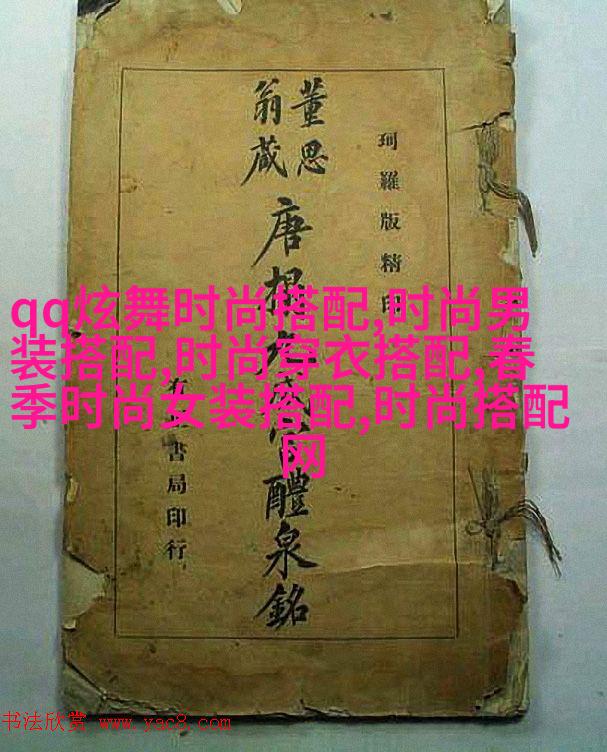 珂羅版精印
董思
翁藏
唐搨九成宮醴泉銘
書局印行
qq炫舞时尚搭配,时尚男
装搭配,时尚穿衣搭配,春
季时尚女装搭配,时尚搭配
网
书法欣赏 www.yac8.com